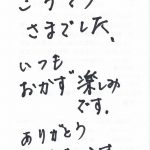 さまでした、
いつも
おかず楽しみ
です。
ありがとう